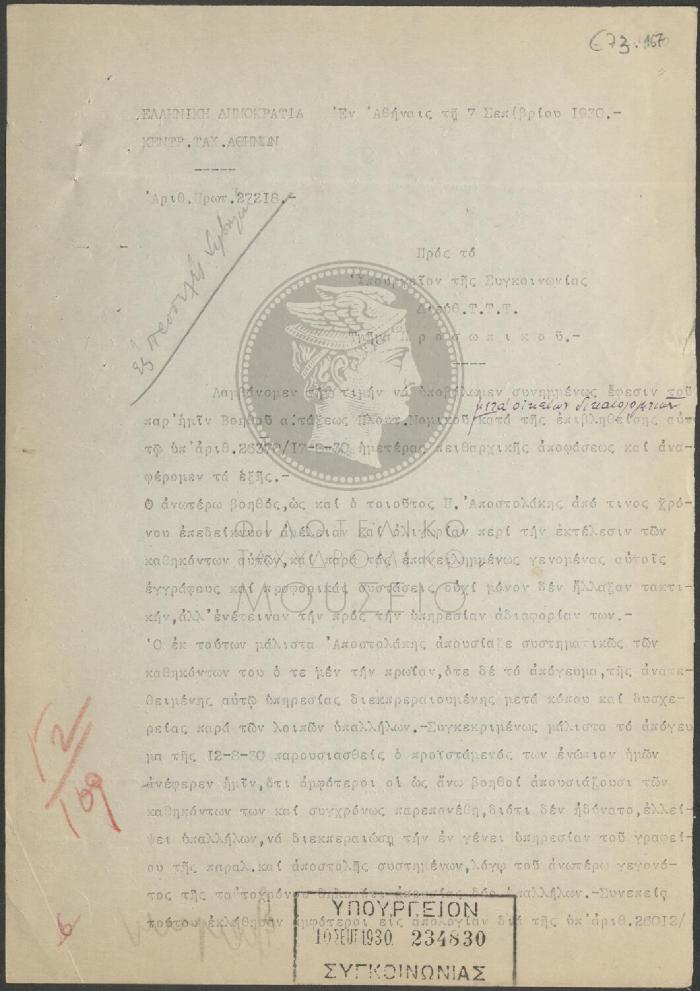 673.167
ΕΛΛΗΝΙΚΗ ΔΗΜΟΚΡΑΤΙΑ Ἐν Ἀθήναις τῇ 7 Σεπ/βρίου 1930.-
ΚΕΝΤΡ.ΤΑΧ.ΑΘΗΝΩΝ
-----
Ἀριθ.Πρωτ.27218.-
Πρός τό
Ὑπουργεῖον τῆς Συγκοινωνίας
Διεύθ.Τ.Τ.Τ.
Τμῆμα Προσωπικοῦ.-
-----
Λαμβάνομεν τήν τιμήν νά ὑποβάλωμεν συνημμένως ἔφεσιν τοῦ
μετά οἰκείων δικαιολογητικῶν
παρ'ἡμῖν Βοηθοῦ α΄τάξεως Πλουτ.Νομικοῦ κατά τῆς ἐπιβληθείσης αὐτῷ
τῇ ὑπ'ἀριθ.26370/17-8-30 ἡμετέρας πειθαρχικῆς ἀποφάσεως καί ἀνα-
φέρομεν τά ἑξῆς.-
Ο ἀνωτέρω βοηθός,ὡς καί ὁ τοιοῦτος Π.Ἀποστολάκης ἀπό τινος χρό-
νου ἐπεδείκνυον ἀμέλειαν καί ὀλιγωρίαν περί τήν ἐκτέλεσιν τῶν
καθηκόντων αὐτῶν,καί παρά τάς ἐπανειλημμένως γενομένας αὐτοῖς
ἐγγράφους καί προφορικάς συστάσεις οὐχί μόνον δέν ἤλλαξαν τακτι-
κήν,ἀλλ'ἐνέτειναν τήν πρός τήν ὑπηρεσίαν ἀδιαφορίαν των.-
Ὁ ἐκ τούτων μάλιστα Ἀποστολάκης ἀπουσίαζε συστηματικῶς τῶν
καθηκόντων του ὁ τε μέν τήν πρωΐαν,ότε δέ τό ἀπόγευμα,τῆς ἀνατε-
θειμένης αὐτῷ ὑπηρεσίας διεκπρεραιουμένης μετά κόπου καί δυσχε-
ρείας παρά τῶν λοιπῶν ὑπαλλήλων.-Συγκεκριμένως μάλιστα τό ἀπόγευ
μα τῆς 12-8-30 παρουσιασθείς ὁ προϊστάμενός των ἐνώπιον ἡμῶν
ἀνέφερεν ἡμῖν,ὅτι ἀμφότεροι οἱ ὡς ἄνω βοηθοί ἀπουσιάζουσι τῶν
καθηκόντων των καί συγχρόνως παρεπονέθη,διότι δέν ἠδύνατο,ἐλλεί-
ψει ὑπαλλήλων,νά διεκπεραιώσῃ τήν ἐν γένει ὑπηρεσίαν τοῦ γραφεί-
ου τῆς παραλ.καί ἀποστολῆς συστημένων,λόγῳ τοῦ ἀνωτέρω γεγονό-
τος τῆς ταὐτοχρόνου δηλαδή ἀπουσίας δύο ὑπαλλήλων.-Συνεπείᾳ
τούτου ἐκλήθησαν ἀμφότεροι εἰς ἀπολογίαν διά τῆς ὑπ'ἀριθ.26012/
ΦΙΛΟΤΕΛΙΚΟ
ΤΑΧΥΔΡΟΜΙΚΟ
ΜΟΥΣΕΙΟ
12/109
6
ΥΠΟΥΡΓΕΙΟΝ
10 ΣΕΠΤ 1930 234830
ΣΥΓΚΟΙΝΩΝΙΑΣ